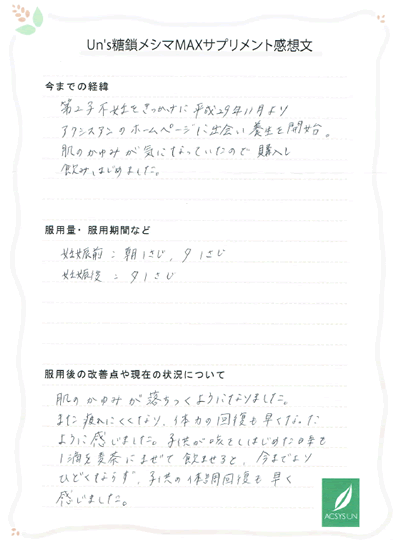 Un's糖鎖メシマMAXサプリメント感想文
今までの経緯
第2子不妊をきっかけに平成29年11月より
アクシスアンのホームページに出会い養生を開始。
肌のかゆみが気になっていたので購入し
飲みはじめました。
服用量・服用期間など
妊娠前：朝1さじ、夕1さじ
妊娠後：夕1さじ
服用後の改善点や現在の状況について
肌のかゆみが落ちつくようになりました。
また疲れにくくなり、体力の回復も早くなった
ように感じました。子供が咳をしはじめた時も
1滴を麦茶にまぜて飲ませると、今までより
ひどくならず、子供の体調回復も早く
感じました。
ACSYS UN